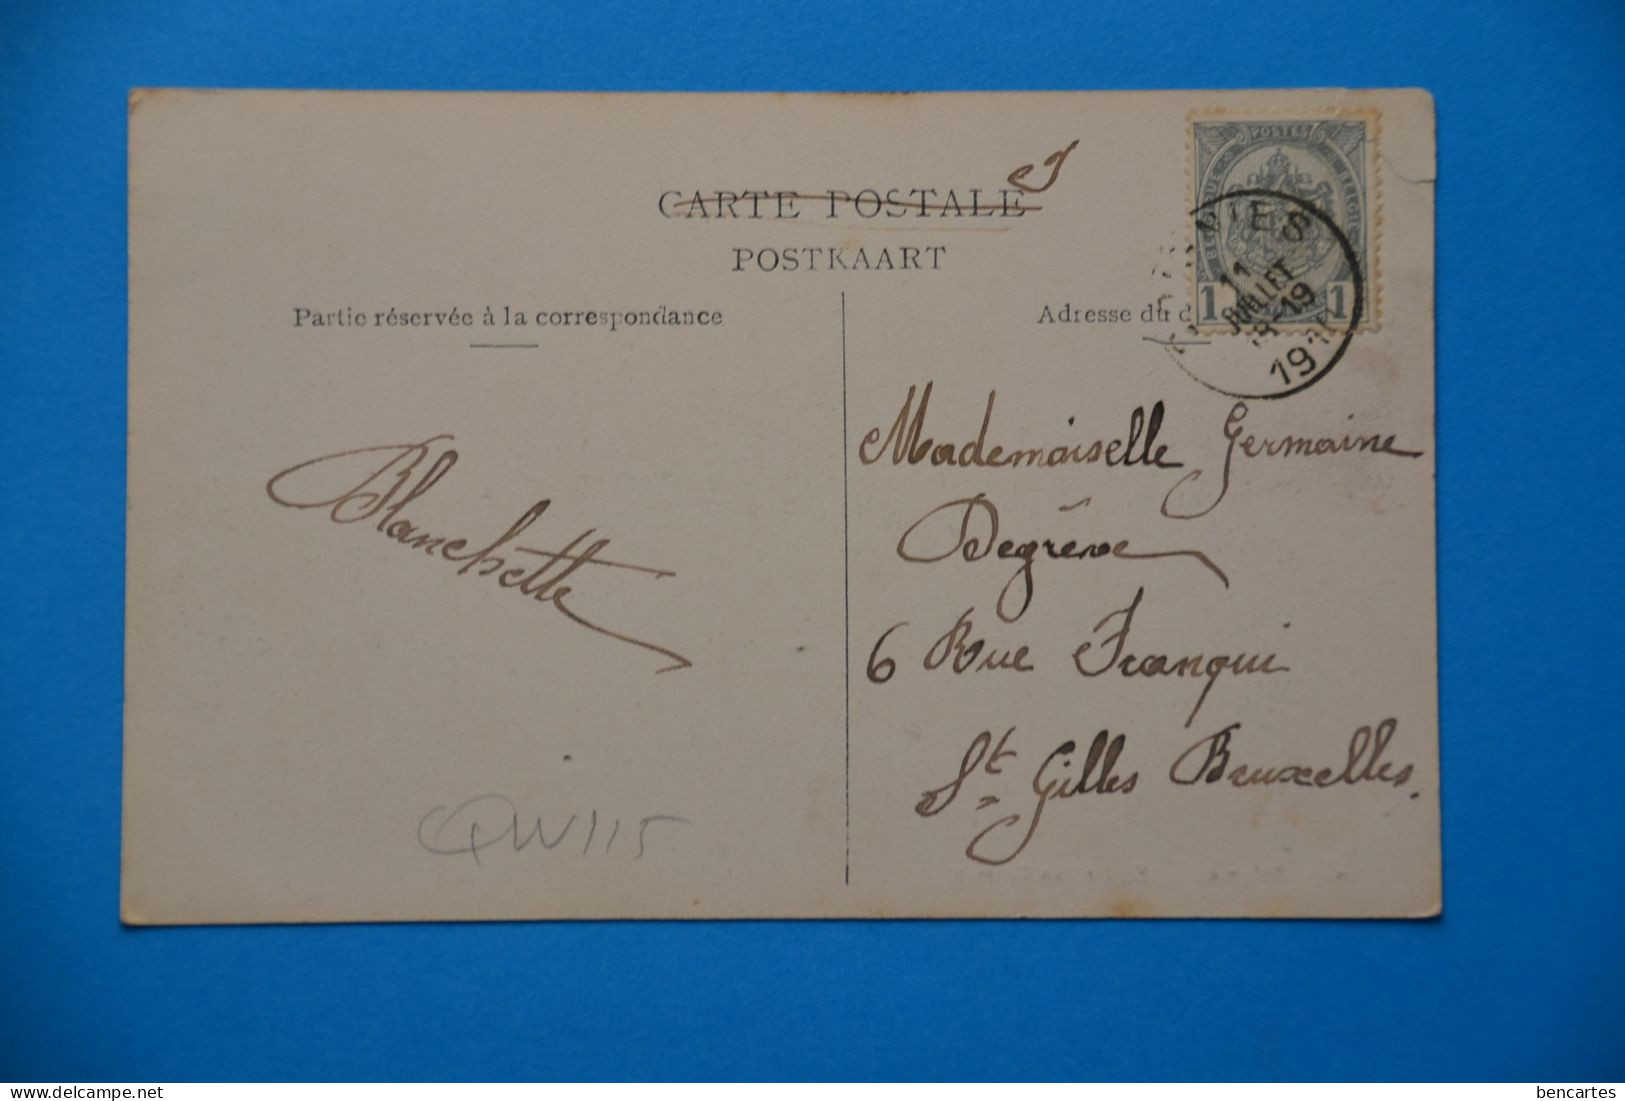 CARTE POSTALE
POSTKAART
Partie réservée à la correspondance
Adresse du d
POSTES
BELGIQUE
BELGIE
1 1
11
JUILLET
18-19
Mademoiselle Germaine
Degrève
6 Rue Franqui
St Gilles Bruxelles.
Blanchette
QW115
delcampe.net
bencartes